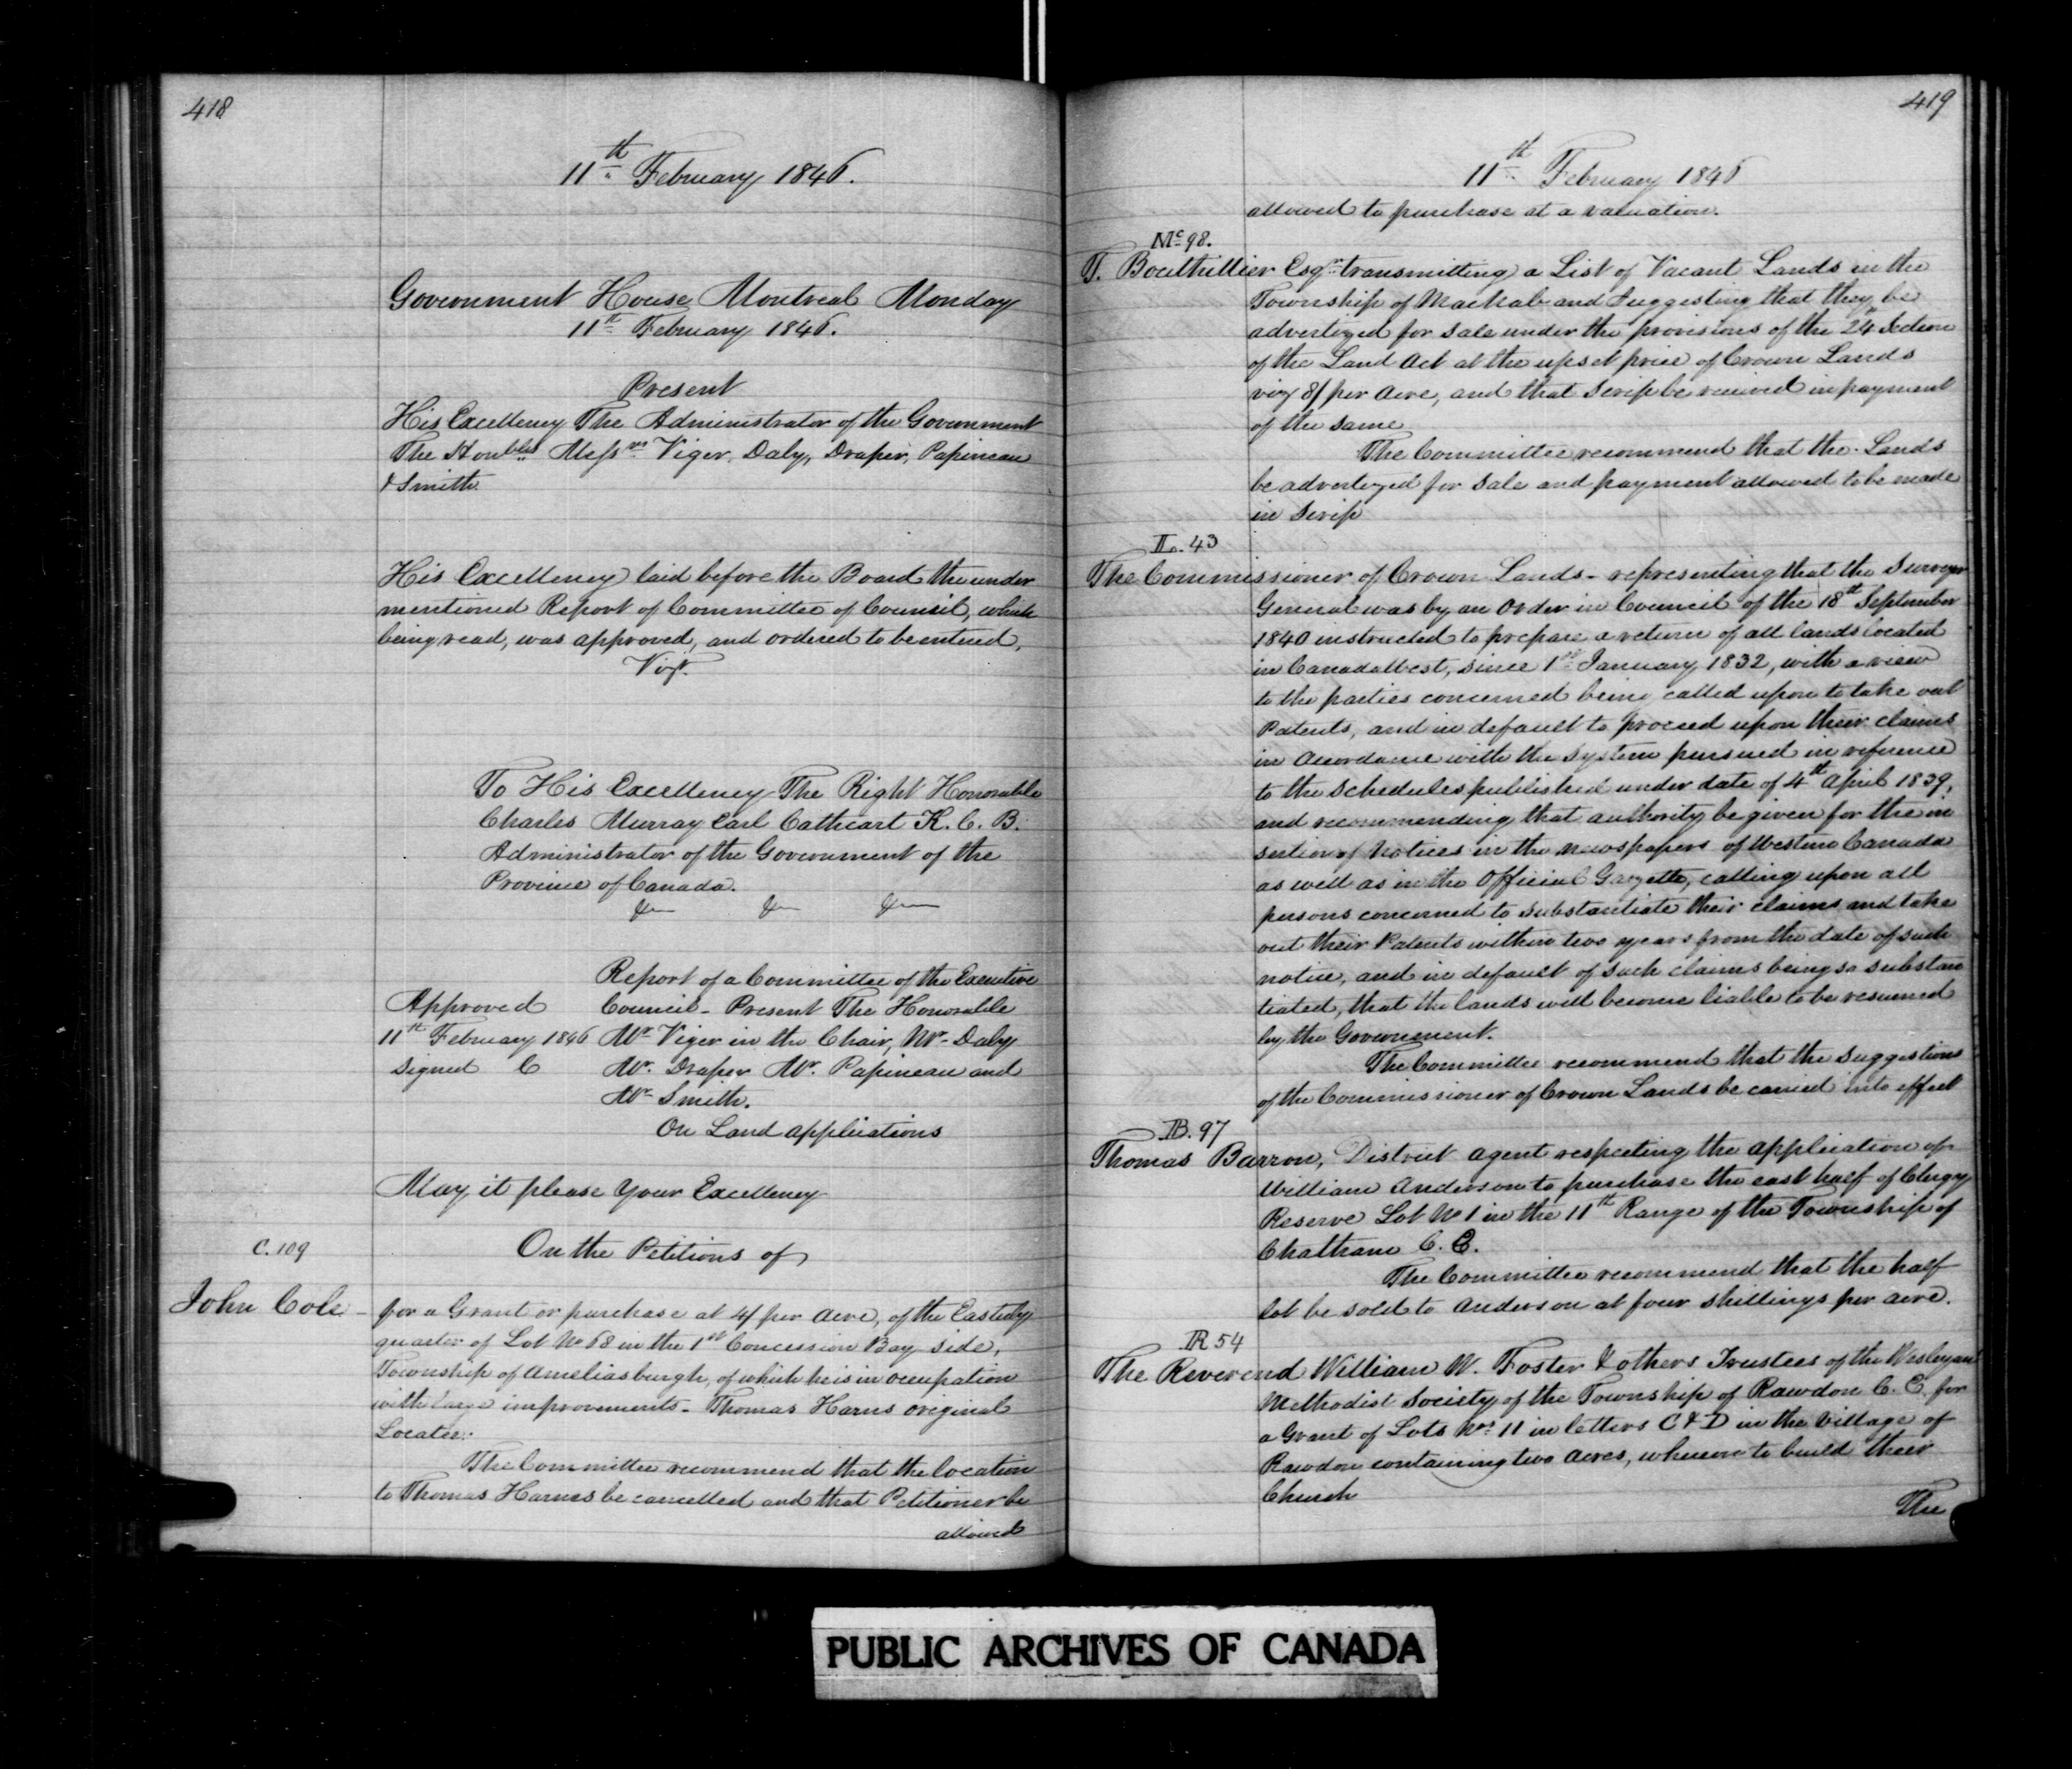 418
11th February 1846.
Government House Montreal Monday
11th February 1846.
Present
His Excellency The Administrator of the Government
The Honbles Messrs Viger, Daly, Draper, Papineau
& Smith
His Excellency laid before the Board the under
mentioned Report of Committee of Council, which
being read, was approved, and ordered to be entered,
Vizt.
To His Excellency The Right Honorable
Charles Murray Earl Cathcart K. C. B.
Administrator of the Government of the
Province of Canada.
&c &c &c
Report of a Committee of the Executive
Approved Council - Present The Honorable
11th February 1846 Mr Viger in the Chair, Mr Daly
Signed C Mr. Draper Mr. Papineau and
Mr Smith.
On Land applications
May it please your Excellency
C. 109 On the Petitions of
John Cole - for a Grant or purchase at 4/ per acre, of the Easterly
quarter of Lot No 68 in the 1st Concession Bay side,
Township of Ameliasburgh, of which he is in occupation
with large improvements - Thomas Harns original
Locatee.
The Committee recommend that the location
to Thomas Harns be cancelled and that Petitioner be
allowed
419
11th February 1846
allowed to purchase at a valuation.
Mc 98.
T. Bouthillier Esqr transmitting a List of Vacant Lands in the
Township of MacNab and Suggesting that they be
advertized for sale under the provisions of the 24th Section
of the Land Act at the upset price of Crown Lands
viz 8/ per acre, and that Scrip be received in payment
of the same
The Committee recommend that the Lands
be advertized for sale and payment allowed to be made
in Scrip
L. 43
The Commissioner of Crown Lands - representing that the Surveyor
General was by an Order in Council of the 18th September
1840 instructed to prepare a return of all lands located
in Canada West, since 1st January 1832, with a view
to the parties concerned being called upon to take out
Patents, and in default to proceed upon their claims
in accordance with the system pursued in reference
to the Schedules published under date of 4th April 1839,
and recommending that authority be given for the in
sertion of Notices in the newspapers of Western Canada
as well as in the Official Gazette, calling upon all
persons concerned to substantiate their claims and take
out their Patents within two years from the date of such
notice, and in default of such claims being so substan
tiated, that the lands will become liable to be resumed
by the Government.
The Committee recommend that the suggestions
of the Commissioner of Crown Lands be carried into effect
B. 97
Thomas Barron, District agent respecting the application of
William Anderson to purchase the east half of Clergy
Reserve Lot No 1 in the 11th Range of the Township of
Chatham C. E.
The Committee recommend that the half
lot be sold to Anderson at four shillings per acre.
R 54
The Reverend William W. Foster & others Trustees of the Wesleyan
Methodist Society of the Township of Rawdon C. E. for
a Grant of Lots Nos 11 in letters C & D in the Village of
Rawdon containing two acres, whereon to build their
Church
The
PUBLIC ARCHIVES OF CANADA